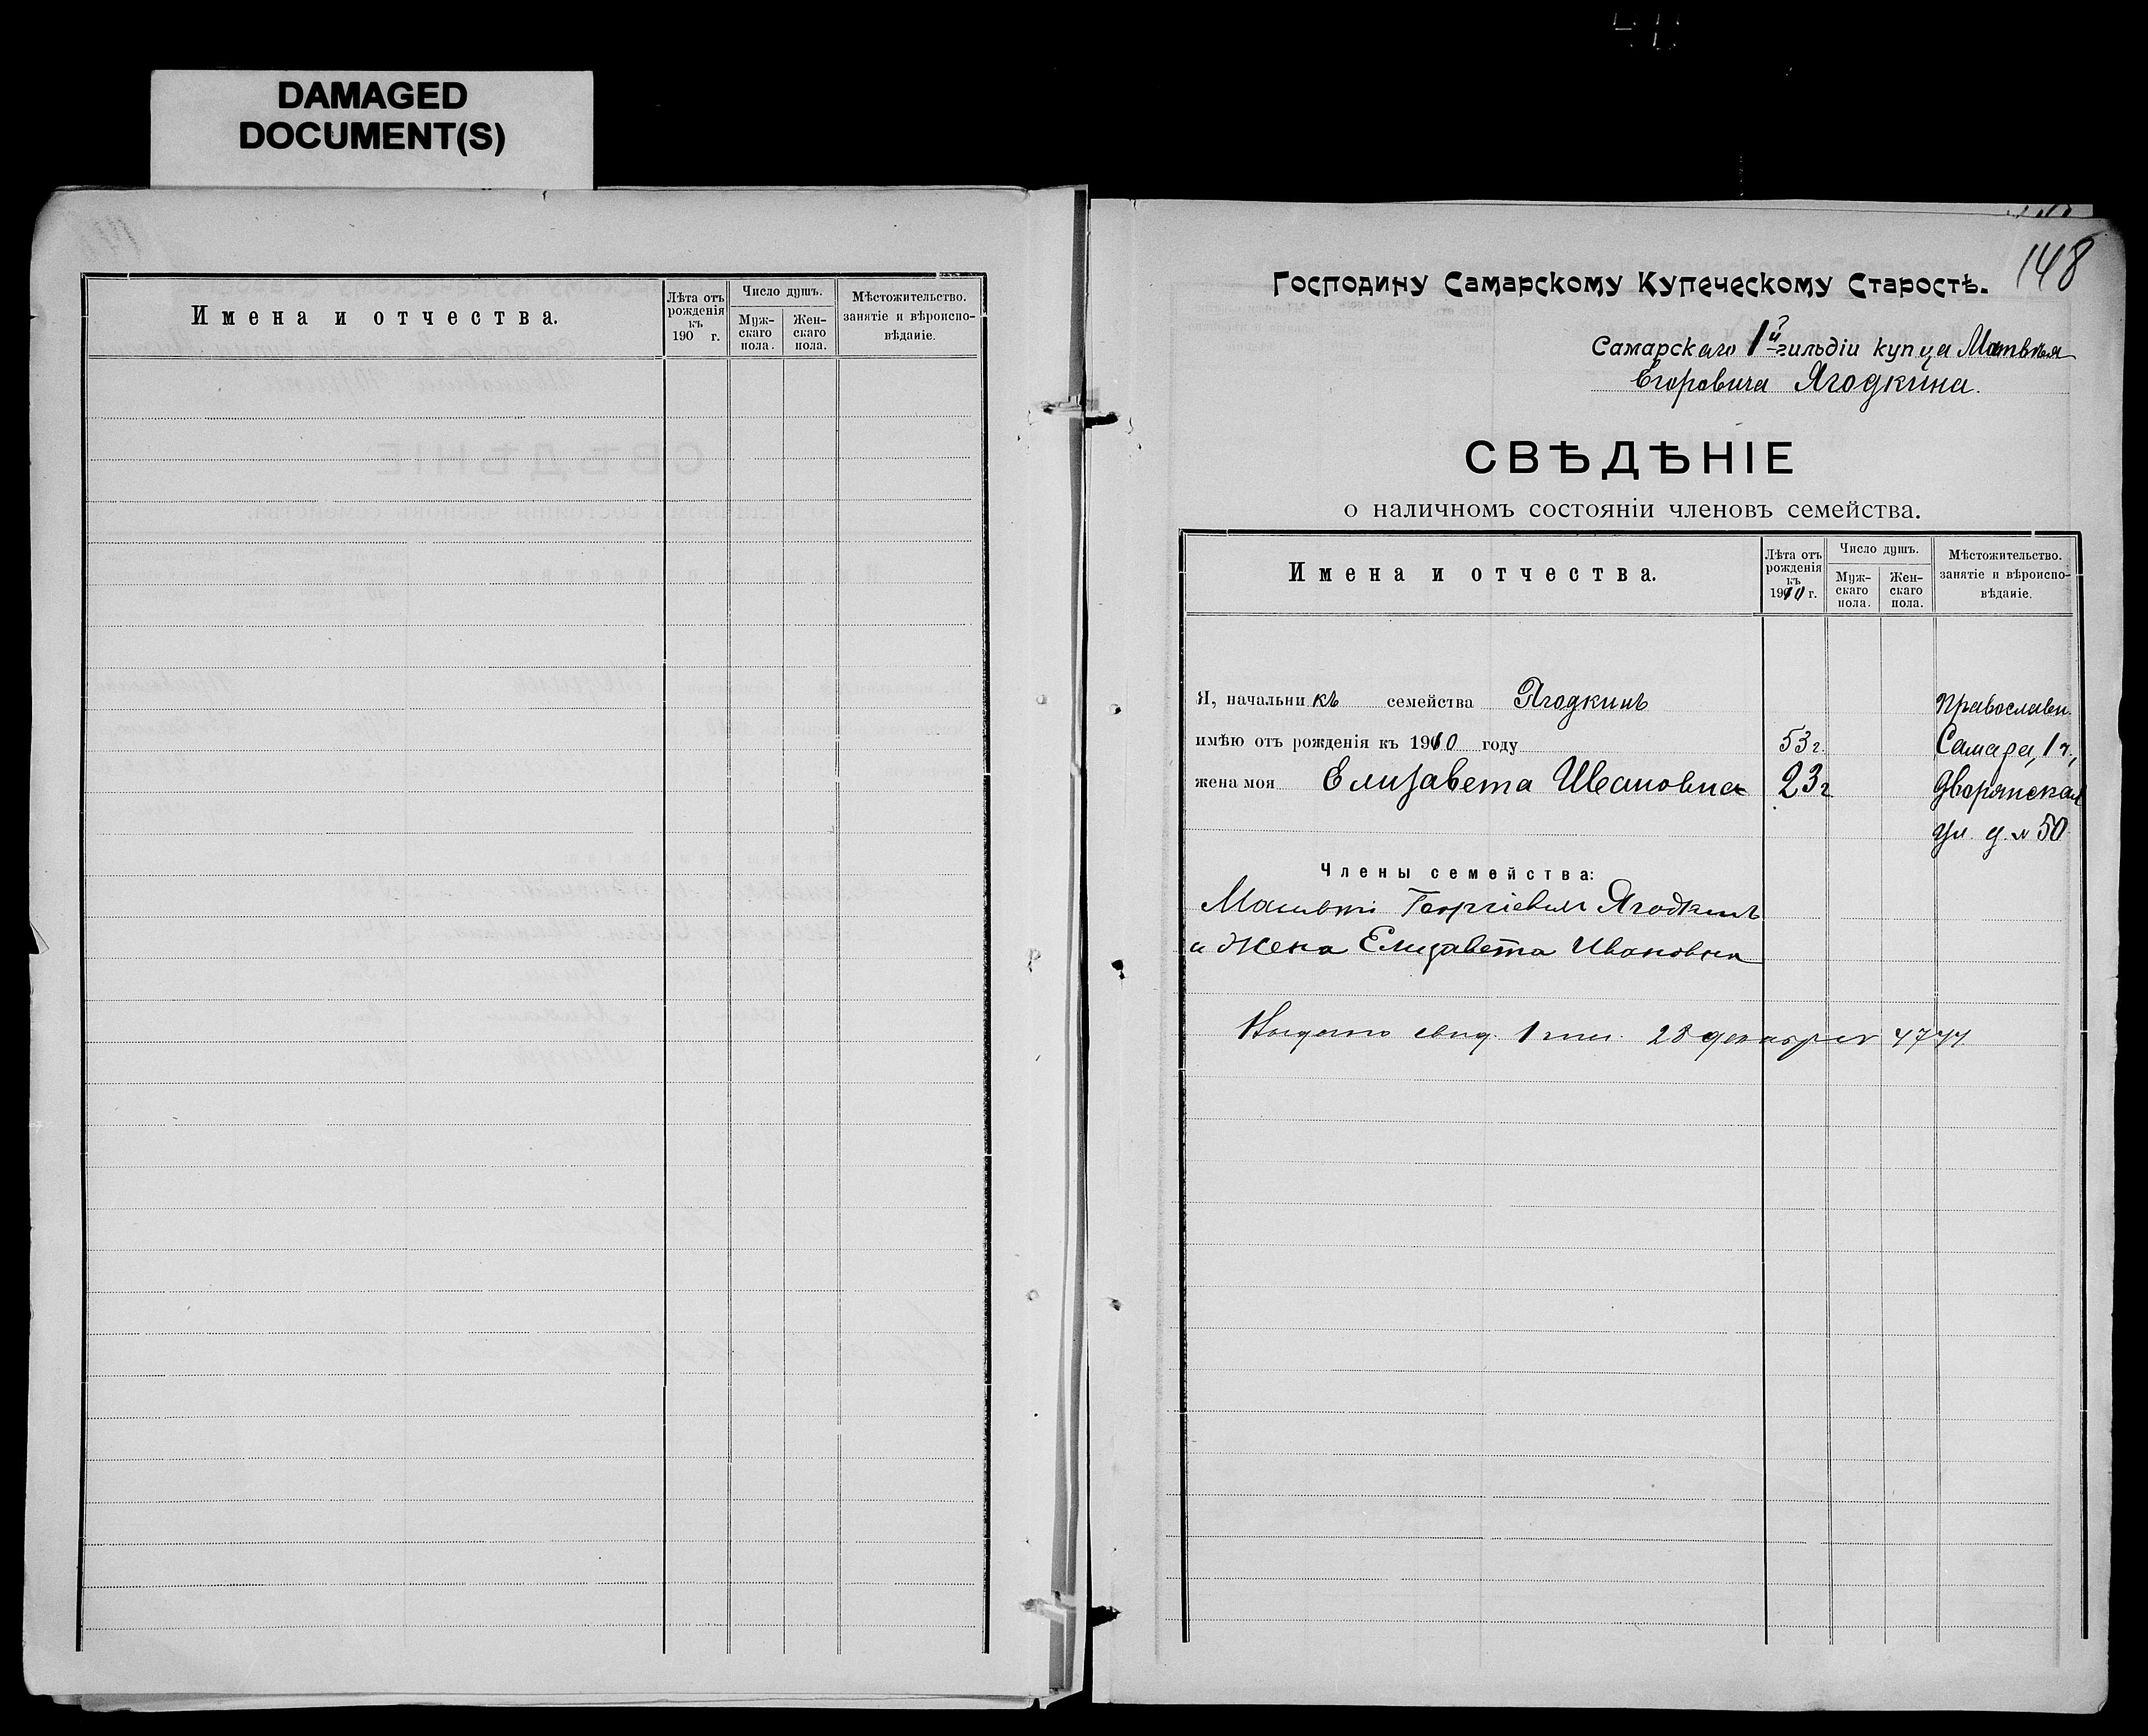 DAMAGED
DOCUMENT(S)
Имена и отчества.
Лѣта отъ рожденія къ 190 г.
Число душъ.
Муж-скаго пола.
Жен-скаго пола.
Мѣстожительство. занятіе и вѣроиспо-вѣданіе.
148
Господину Самарскому Купеческому Старостѣ.
Самарскаго 1й гильдіи купца Матвѣя
Егоровича Ягодкина.
СВѢДѢНІЕ
о наличномъ состояніи членовъ семейства.
Имена и отчества.
Лѣта отъ рожденія къ 1910 г.
Число душъ.
Муж-скаго пола.
Жен-скаго пола.
Мѣстожительство. занятіе и вѣроиспо-вѣданіе.
Я, начальникъ семейства Ягодкинъ Православн.
имѣю отъ рожденія къ 1910 году 53 г. Самара, 1 ч.,
жена моя Елизавета Ивановна 23 г Дворянская
ул. д. № 50
Члены семейства:
Матвѣй Георгіевич Ягодкинъ
и жена Елизавета Ивановна
Выдано свид. 1 гил. 28 декабря